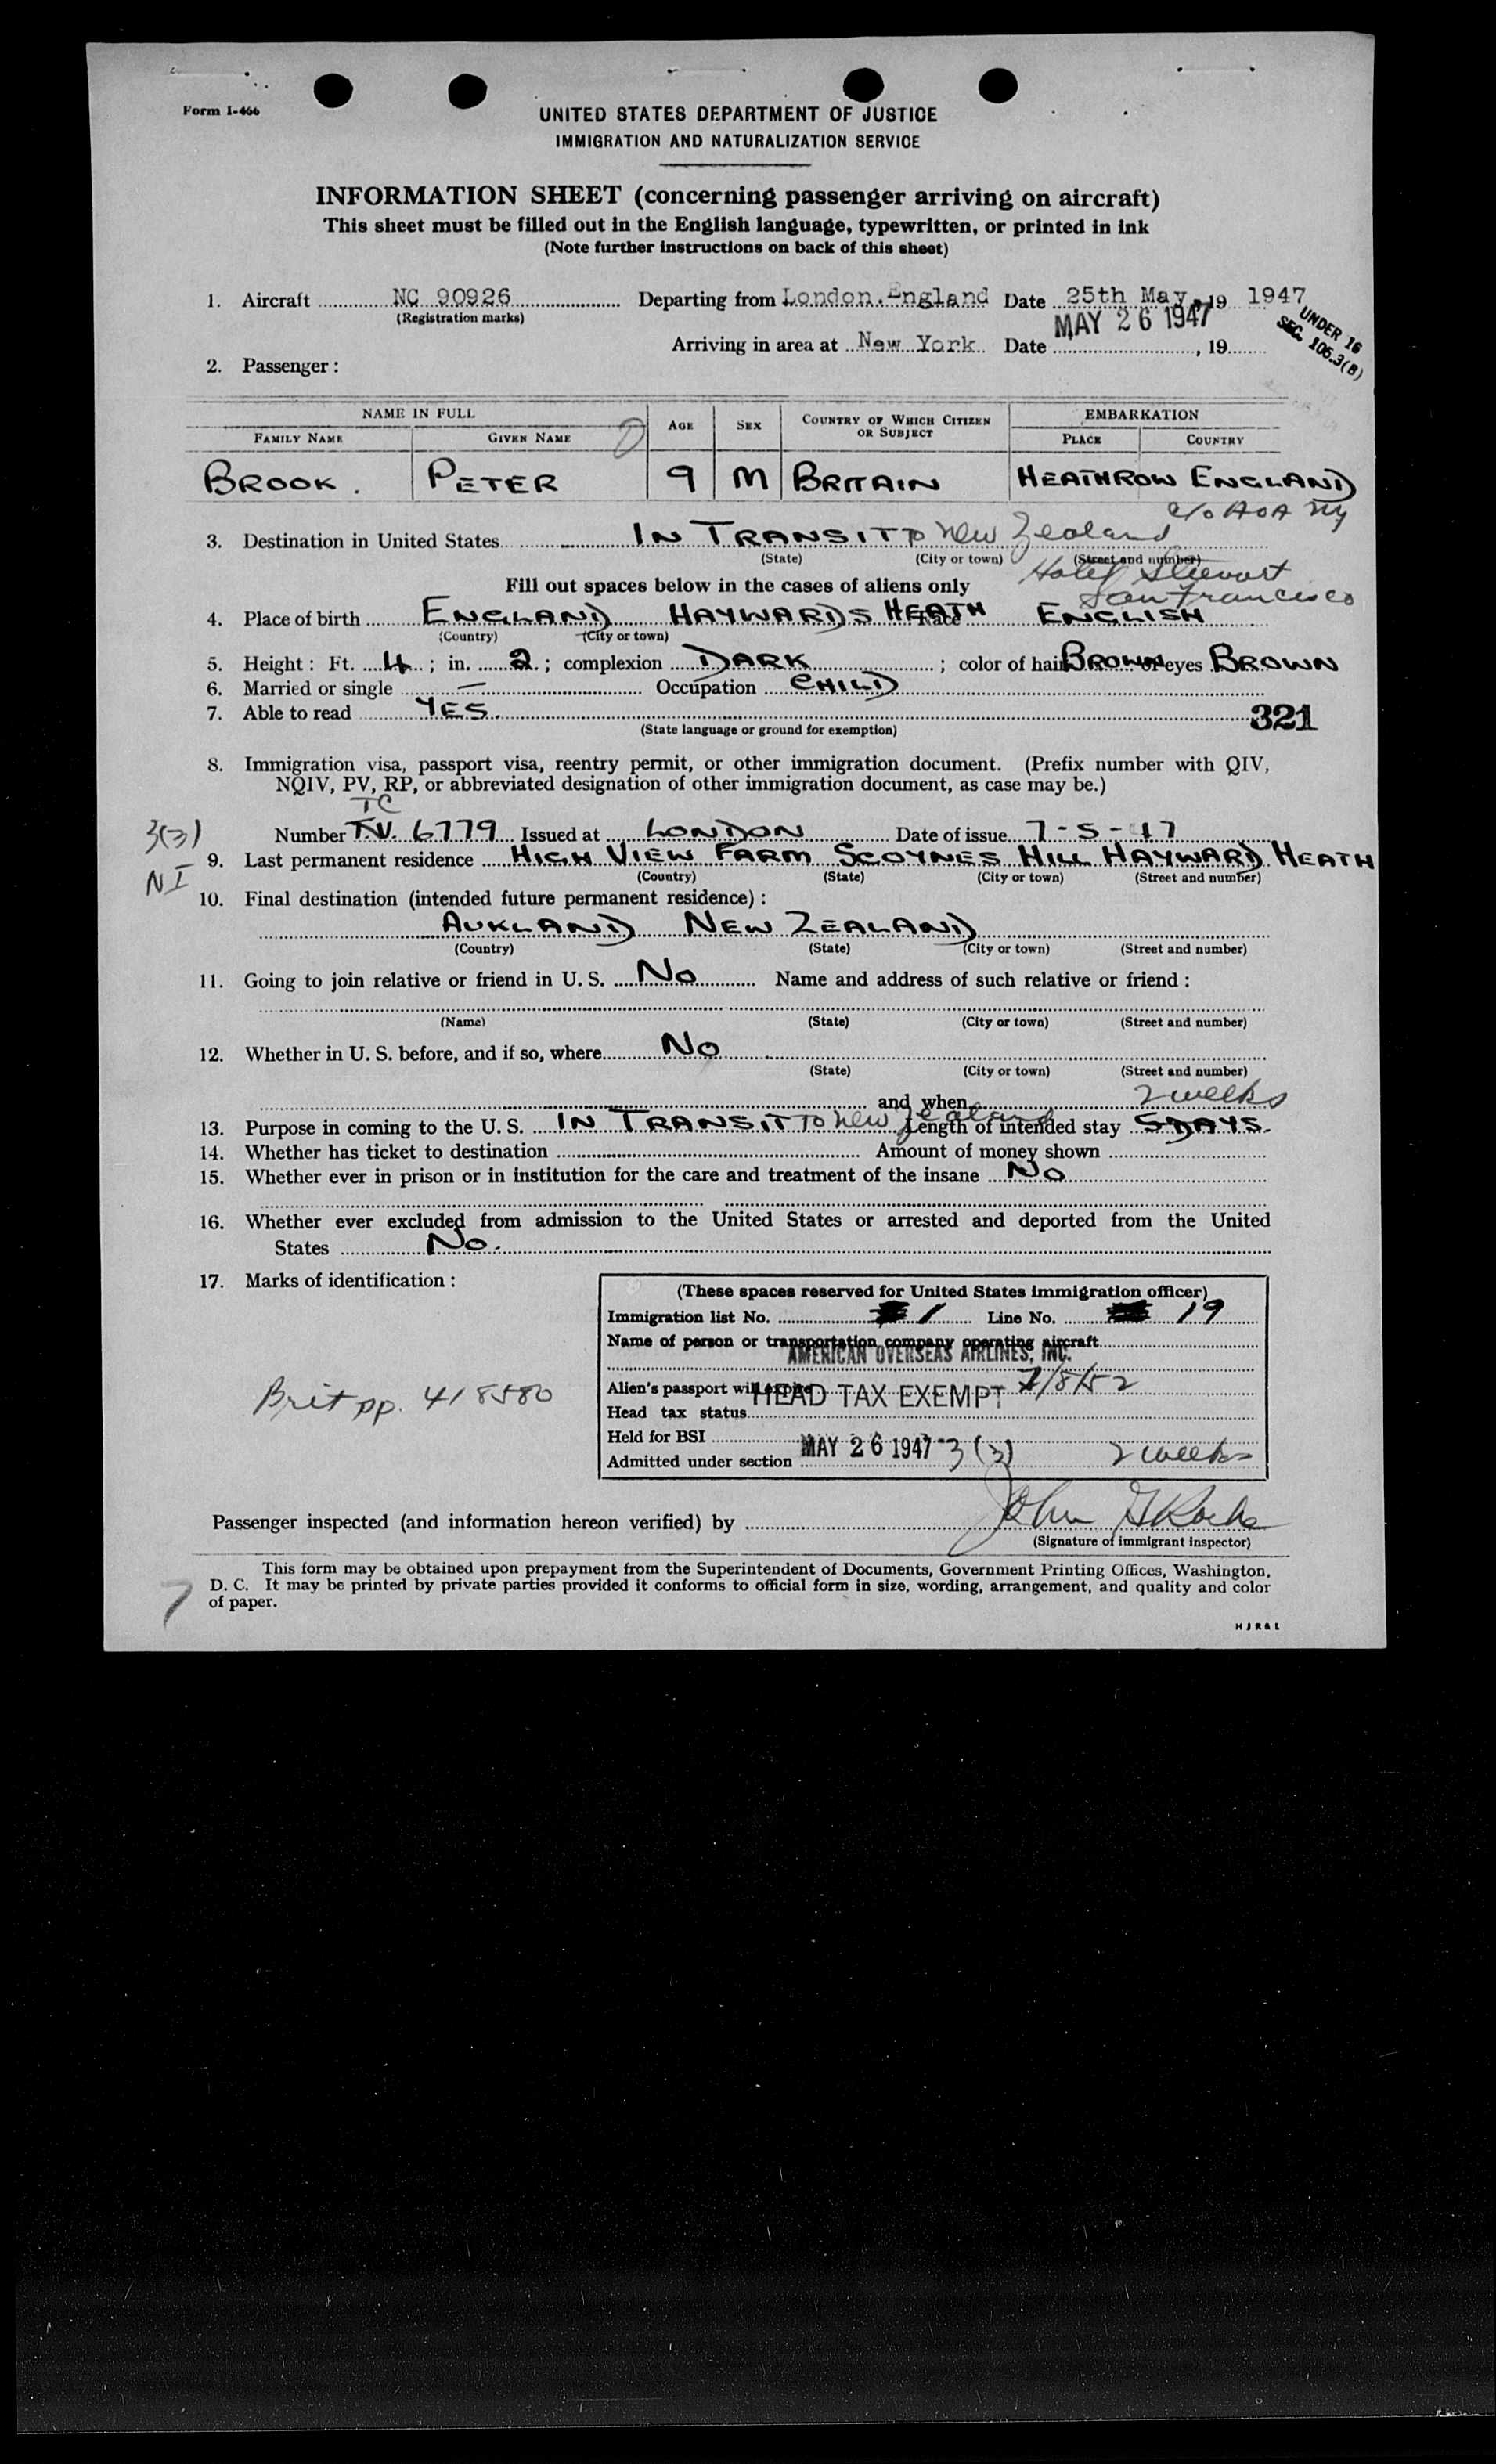 Form I-466
UNITED STATES DEPARTMENT OF JUSTICE
IMMIGRATION AND NATURALIZATION SERVICE
INFORMATION SHEET (concerning passenger arriving on aircraft)
This sheet must be filled out in the English language, typewritten, or printed in ink
(Note further instructions on back of this sheet)
1. Aircraft NC 90926 Departing from London. England Date 25th May, 19 1947
(Registration marks)
MAY 26 1947
UNDER 16
SEC. 105.3(B)
Arriving in area at New York Date , 19
2. Passenger:
NAME IN FULL AGE SEX COUNTRY OF WHICH CITIZEN OR SUBJECT EMBARKATION
FAMILY NAME GIVEN NAME PLACE COUNTRY
BROOK. PETER 9 M BRITAIN HEATHROW ENGLAND
c/o AOA NY
3. Destination in United States IN TRANSIT To New Zealand
(State) (City or town) (Street and number)
Hotel Stewart
San Francisco
Fill out spaces below in the cases of aliens only
4. Place of birth ENGLAND HAYWARDS HEATH race ENGLISH
(Country) (City or town)
5. Height: Ft. 4; in. 2; complexion DARK; color of hair BROWN eyes BROWN
6. Married or single — Occupation CHILD
7. Able to read YES.
(State language or ground for exemption)
321
8. Immigration visa, passport visa, reentry permit, or other immigration document. (Prefix number with QIV,
NQIV, PV, RP, or abbreviated designation of other immigration document, as case may be.)
TC
3(3)
Number T.V. 6779 Issued at LONDON Date of issue 7-5-47
NI
9. Last permanent residence HIGH VIEW FARM SCOYNES HILL HAYWARD HEATH
(Country) (State) (City or town) (Street and number)
10. Final destination (intended future permanent residence):
AUKLAND NEW ZEALAND
(Country) (State) (City or town) (Street and number)
11. Going to join relative or friend in U. S. NO Name and address of such relative or friend:
(Name) (State) (City or town) (Street and number)
12. Whether in U. S. before, and if so, where NO
(State) (City or town) (Street and number)
and when 2 weeks
13. Purpose in coming to the U. S. IN TRANSIT TO New Zealand Length of intended stay 5 DAYS.
14. Whether has ticket to destination Amount of money shown
15. Whether ever in prison or in institution for the care and treatment of the insane NO
16. Whether ever excluded from admission to the United States or arrested and deported from the United
States NO.
17. Marks of identification:
(These spaces reserved for United States immigration officer)
Immigration list No. 1 Line No. 19
Name of person or transportation company operating aircraft
AMERICAN OVERSEAS AIRLINES, INC.
Alien's passport will expire 7/8/52
HEAD TAX EXEMPT
Brit pp. 418580
Head tax status
Held for BSI
MAY 26 1947
Admitted under section 3(3) 2 weeks
Passenger inspected (and information hereon verified) by John
(Signature of immigrant inspector)
This form may be obtained upon prepayment from the Superintendent of Documents, Government Printing Offices, Washington,
D. C. It may be printed by private parties provided it conforms to official form in size, wording, arrangement, and quality and color
of paper.
7
HJR&L